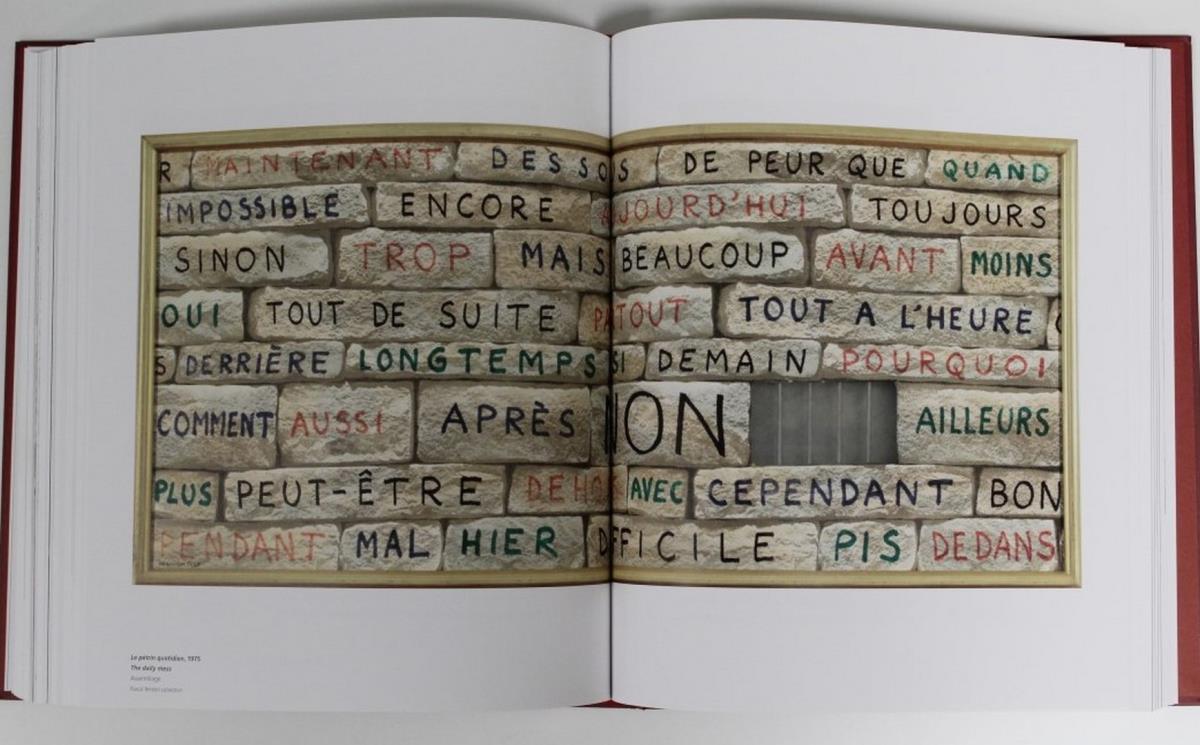 R MAINTENANT DESSOUS DE PEUR QUE QUAND
IMPOSSIBLE ENCORE AUJOURD'HUI TOUJOURS
SINON TROP MAIS BEAUCOUP AVANT MOINS
OUI TOUT DE SUITE PARTOUT TOUT A L'HEURE
S DERRIÈRE LONGTEMPS SI DEMAIN POURQUOI
COMMENT AUSSI APRÈS NON AILLEURS
PLUS PEUT-ÊTRE DEHORS AVEC CEPENDANT BON
PENDANT MAL HIER DIFFICILE PIS DEDANS
Le pétrin quotidien, 1975
The daily mess
Assemblage